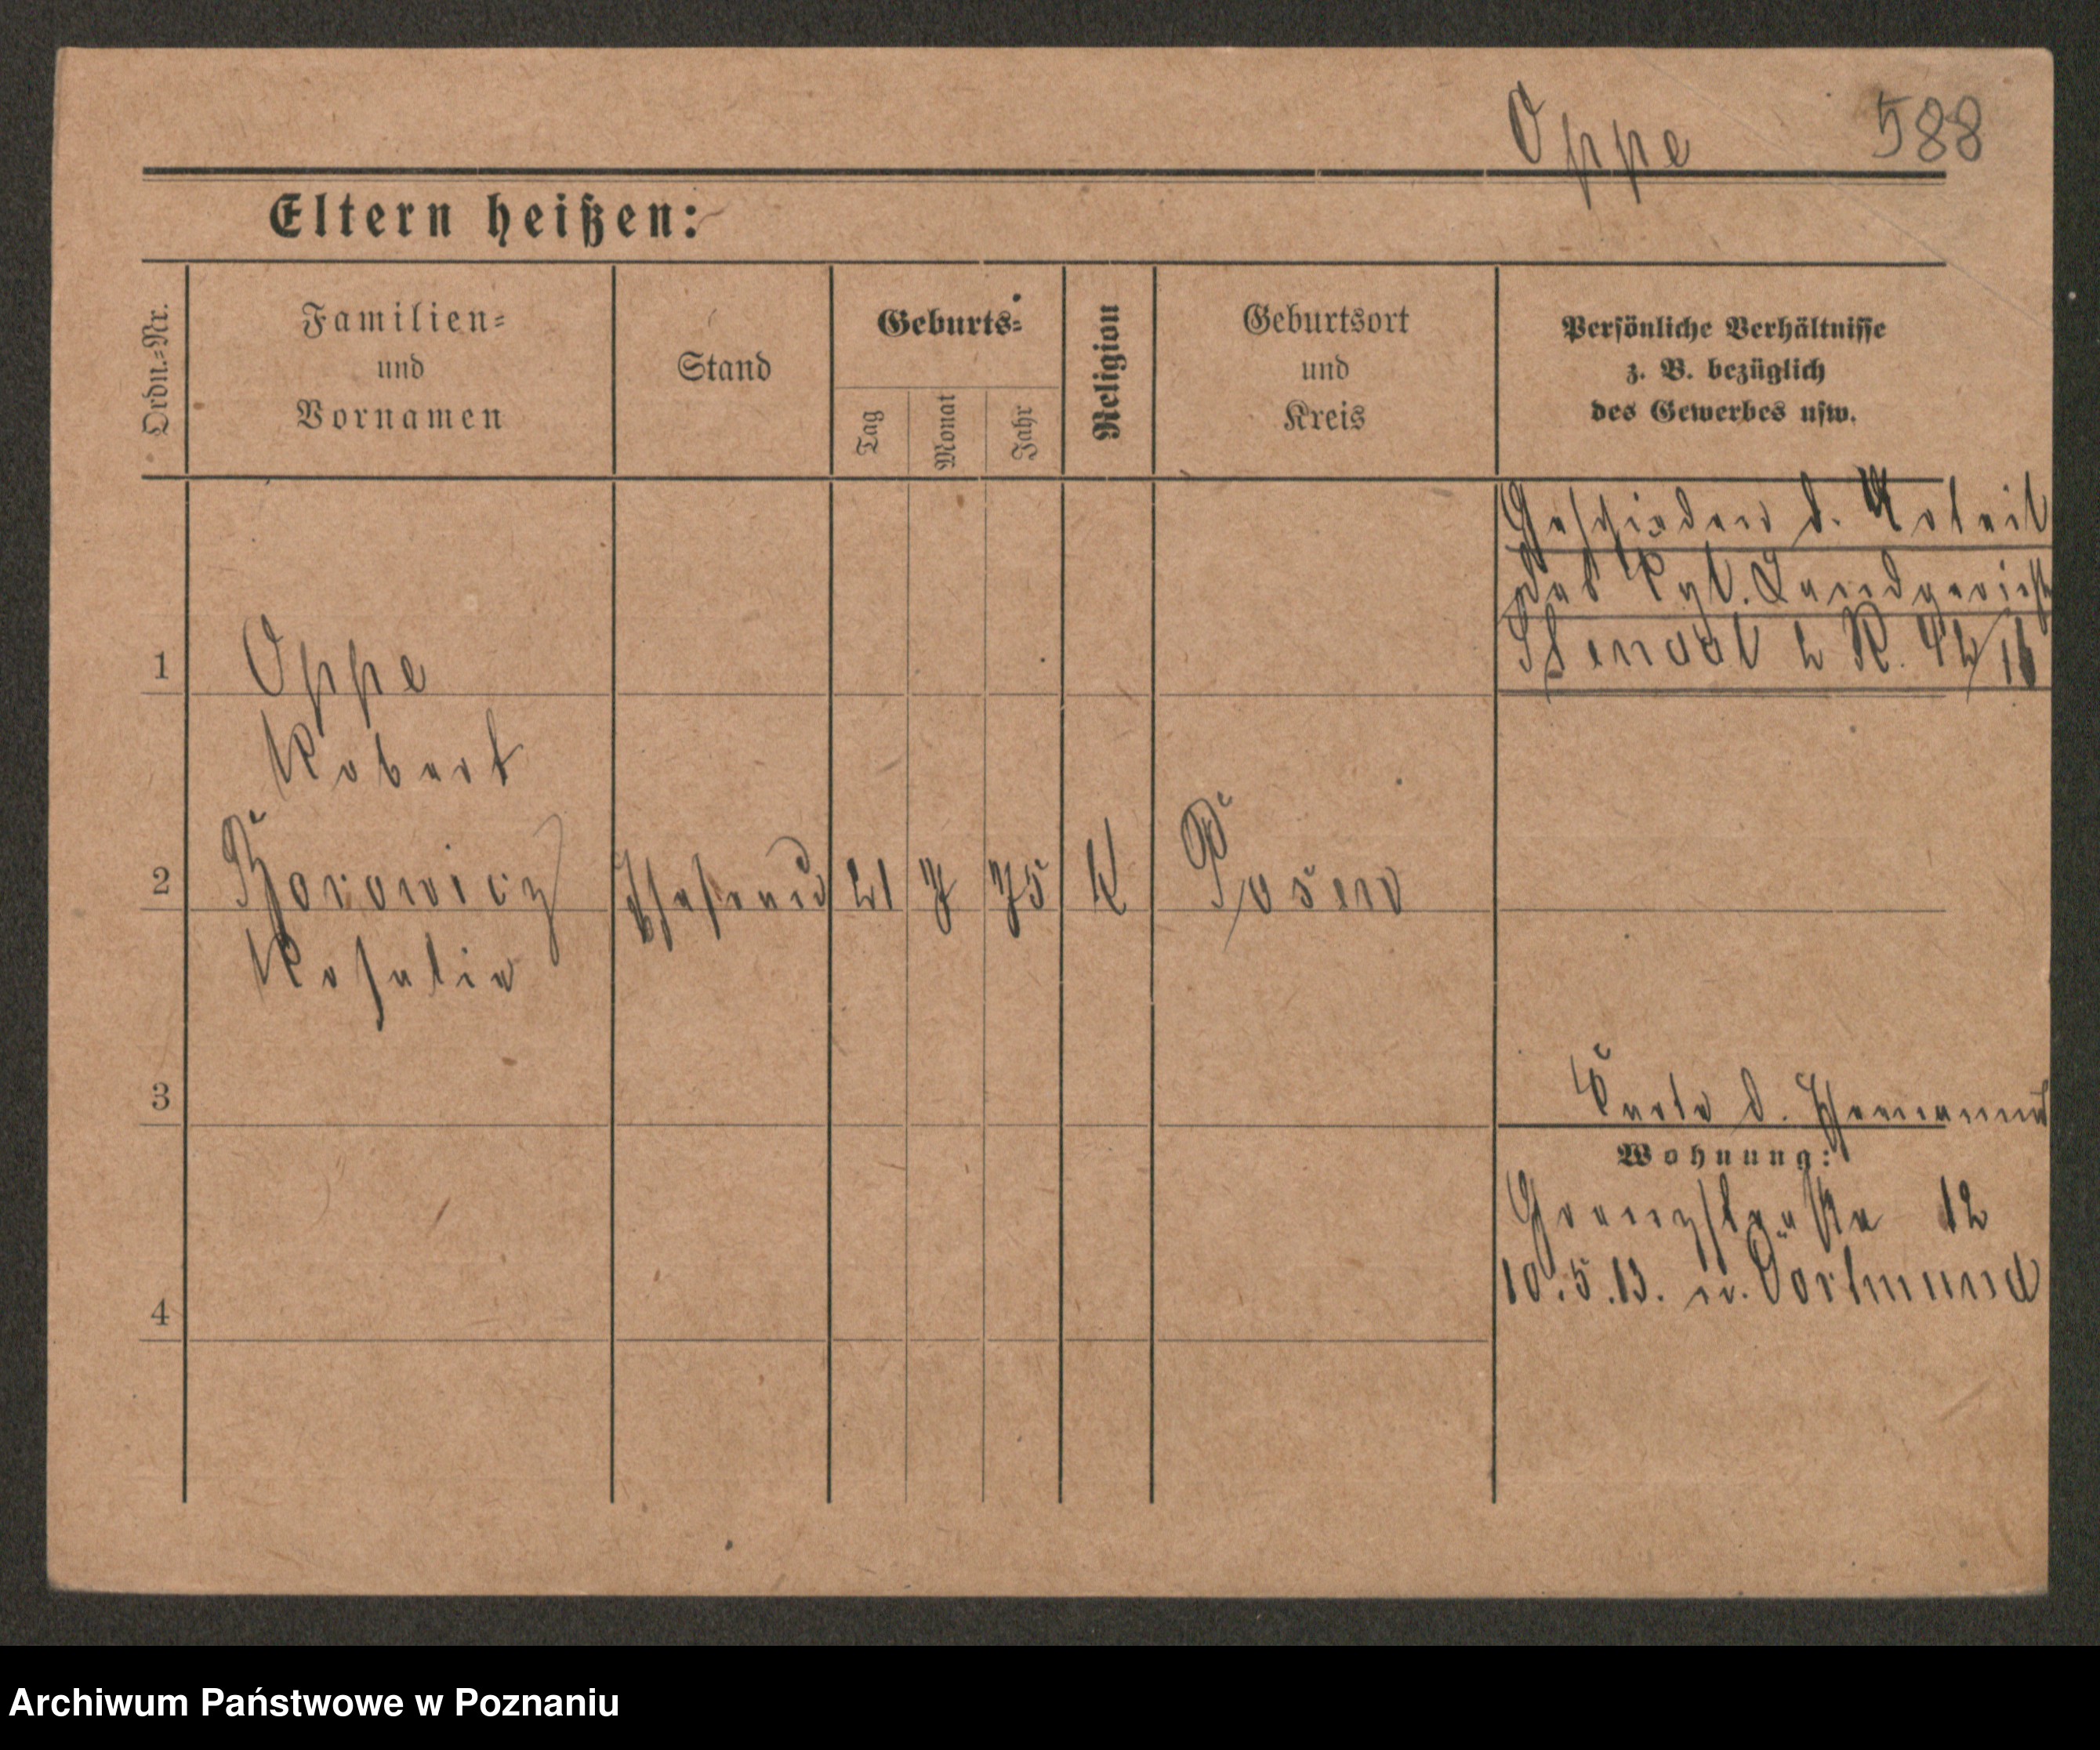 Oppe 588
Eltern heißen:
Ordn.=Nr.
Familien=
und
Vornamen
Stand
Geburts=
Tag
Monat
Jahr
Religion
Geburtsort
und
Kreis
Persönliche Verhältnisse
z. B. bezüglich
des Gewerbes usw.
Geschieden d. Urteil
des Kgl. Landgericht
2 R. 42/16
1 Oppe
Robert
2 Borowicz Ehefrau 21 7 75 K Posen
Rosalie
3
Karte d.
Wohnung:
Grenzstraße 12
10.5.13. n. Dortmund
4
Archiwum Państwowe w Poznaniu